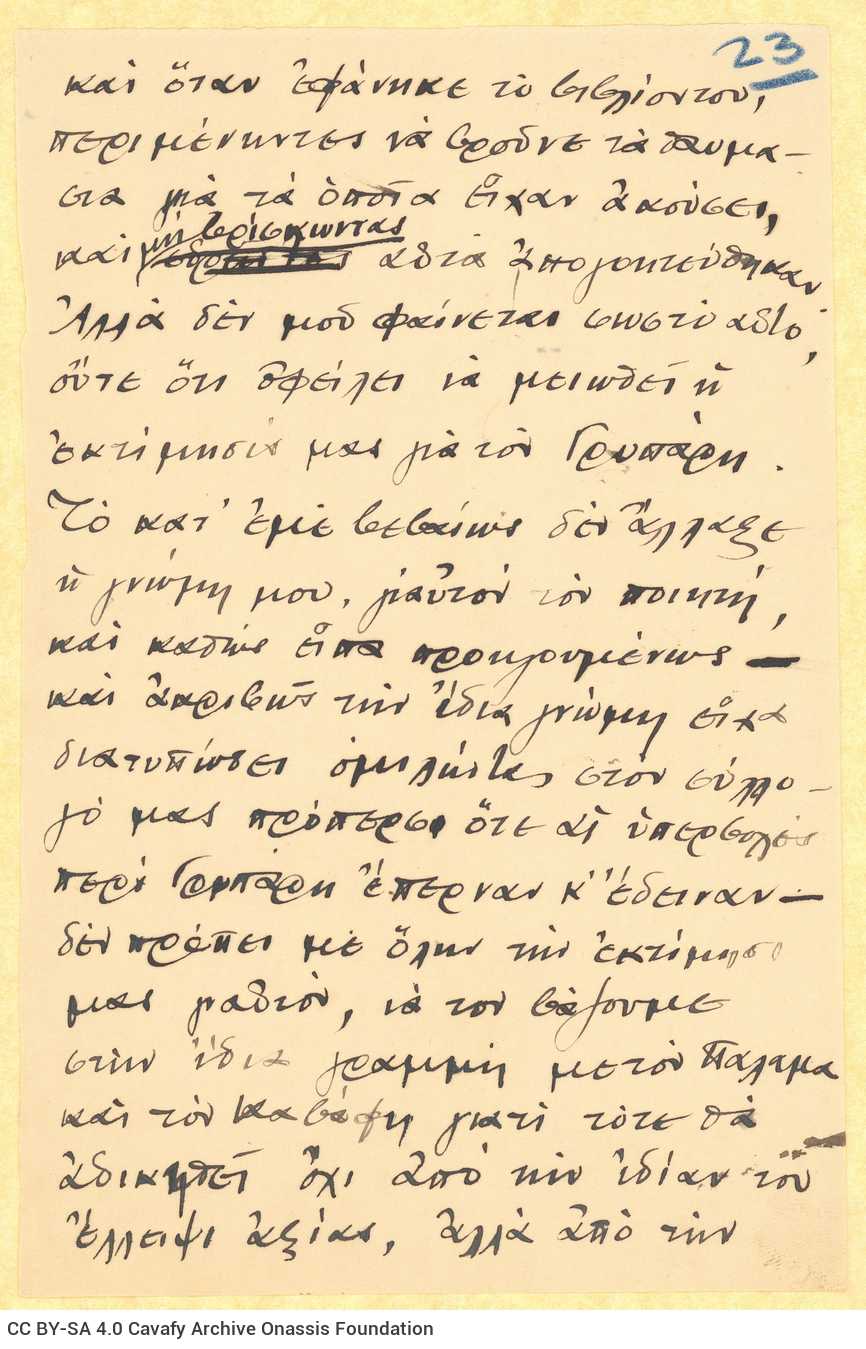 23
καὶ ὅταν ἐφάνηκε τὸ βιβλίοντου,
περιμένηντες νὰ βροῦνε τὰ θαυμα-
σια γιὰ τὰ ὁποῖα εἶχαν ἀκούσει,
καὶ μὴ βρίσκωντας αὐτὰ ἀπογοητεύθηκαν.
Ἀλλὰ δὲν μοῦ φαίνεται σωστὸ αὐτό,
οὔτε ὅτι ὀφείλει νὰ μειωθεῖ ἡ
ἐκτίμησίς μας γιὰ τὸν Γρυπάρη.
Τὸ κατ' ἐμὲ βεβαίως δὲν ἄλλαξε
ἡ γνώμη μου, γιαὐτὸν τὸν ποιητή,
καὶ καθὼς εἶπα προηγουμένως —
καὶ ἀκριβῶς τὴν ἴδια γνώμη εἶχα
διατυπώσει ὁμιλώντας στὸν σύλλο-
γό μας πρόπερσι ὅτε αἱ ὑπερβολὲς
περὶ Γρυπάρη ἔπερναν κ' ἔδειναν —
δὲν πρέπει μὲ ὅλην τὴν ἐκτίμησι
μας γιαὐτὸν, νὰ τον βάζουμε
στὴν ἴδια γραμμὴ μετὸν Παλαμα
καὶ τὸν Καβάφη γιατὶ τότε θὰ
ἀδικηθεῖ ὄχι ἀπὸ τὴν ἰδίαν τοῦ
ἔλλειψι ἀξίας, ἀλλὰ ἀπὸ τὴν
CC BY-SA 4.0 Cavafy Archive Onassis Foundation